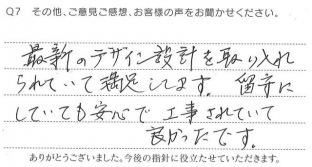 Q7 その他、ご意見ご感想、お客様の声をお聞かせください。
最新のデザイン設計を取り入れ
られていて満足してます。留守に
していても安心で工事されていて
良かったです。
ありがとうございました。今後の指針に役立たせていただきます。